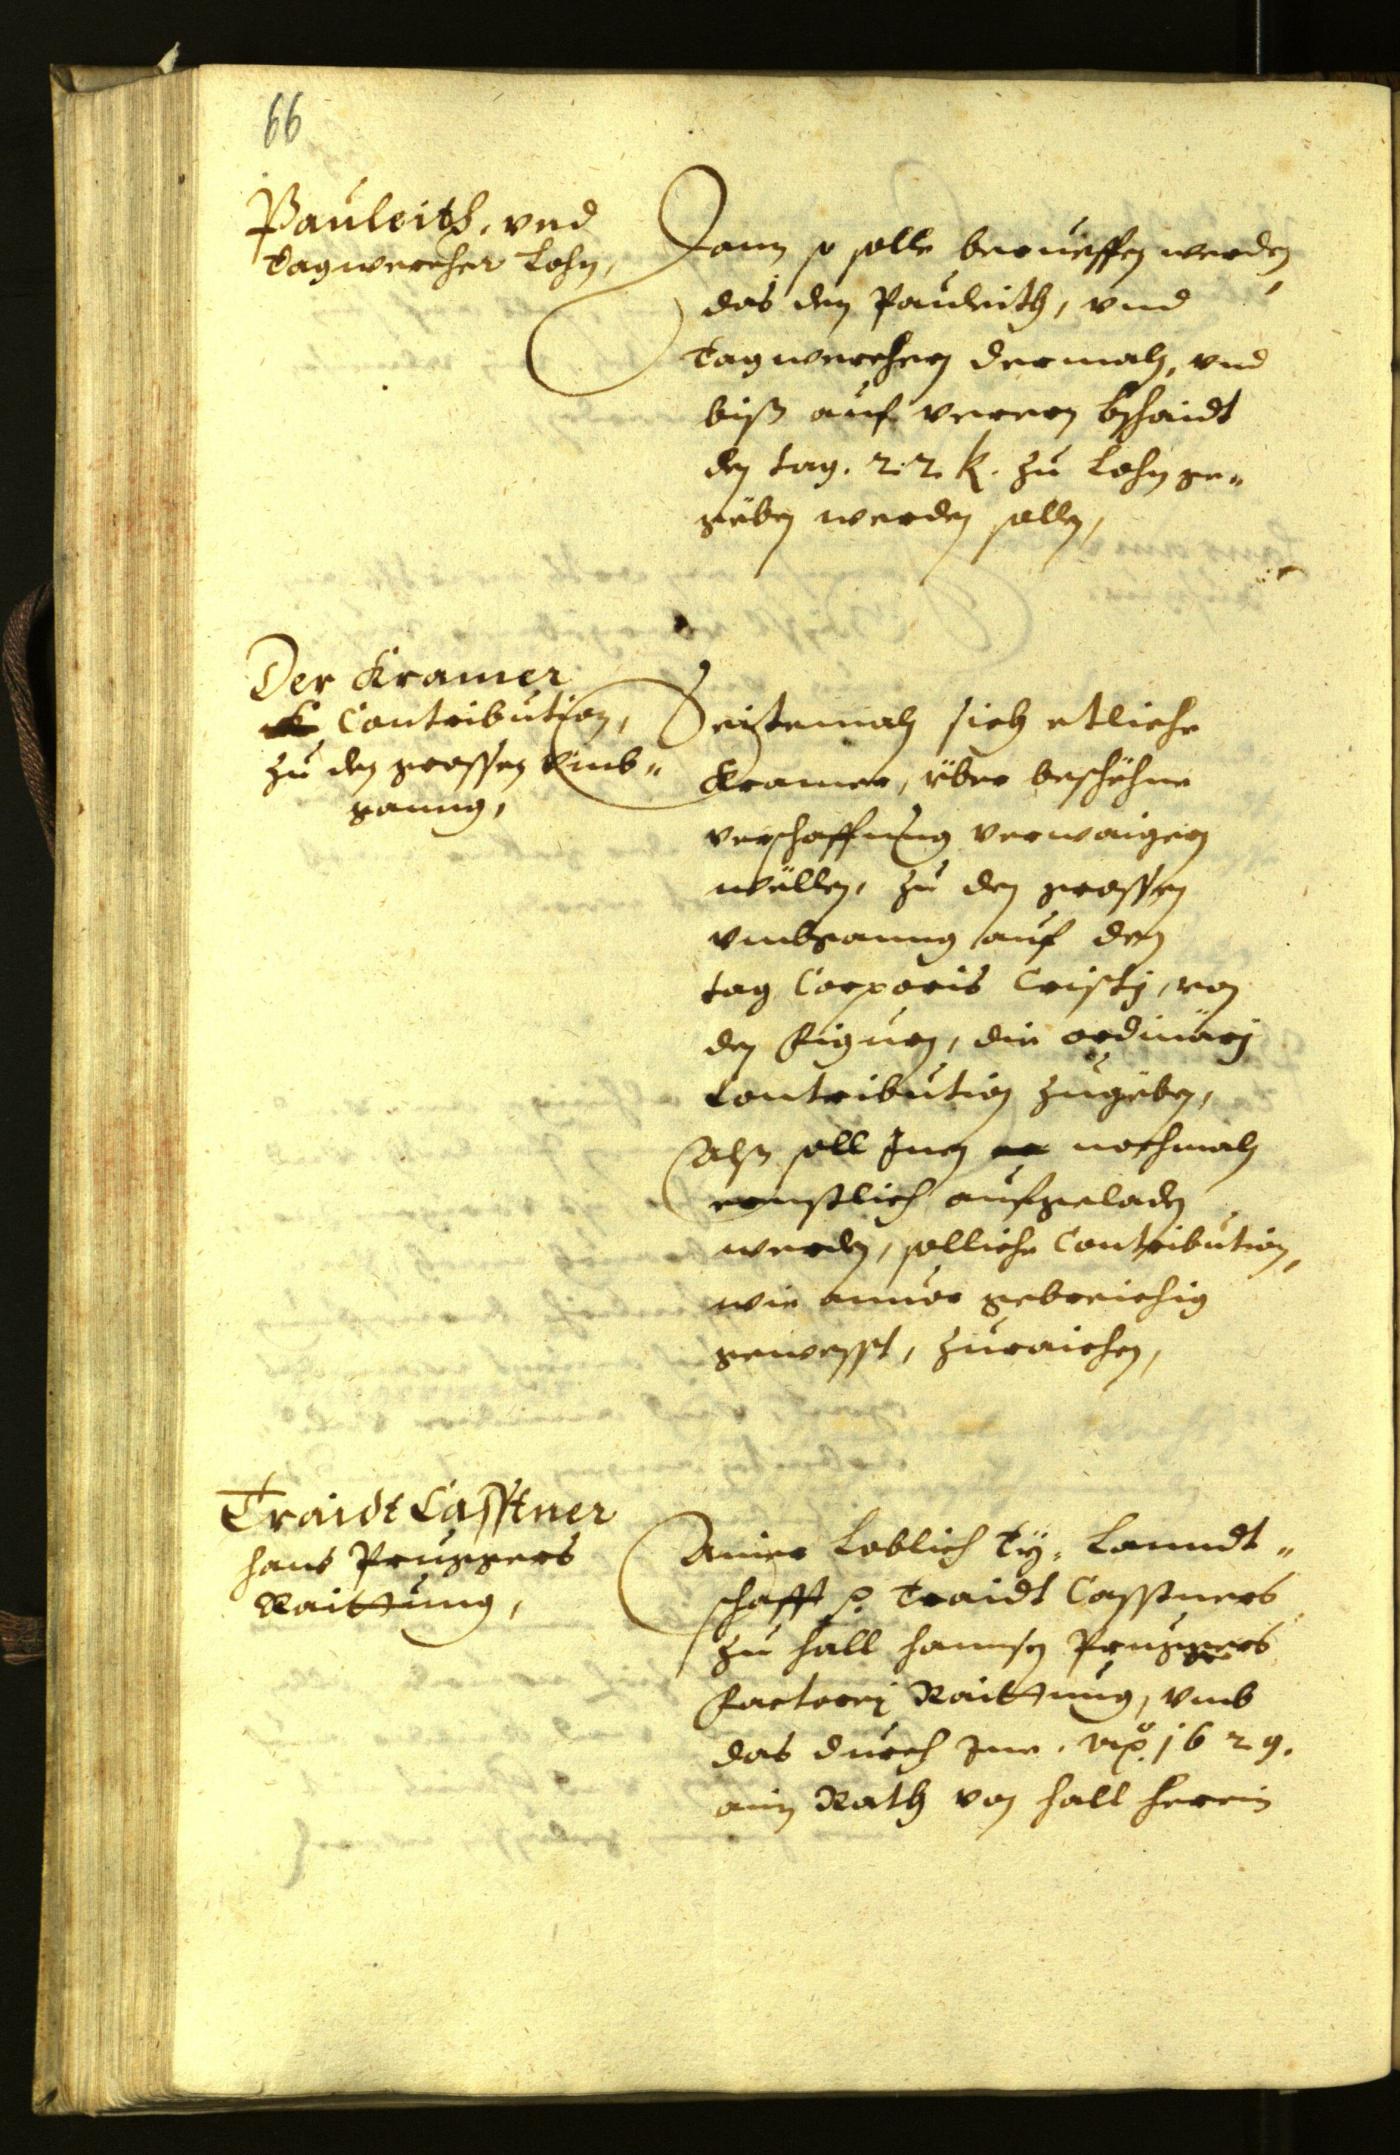 66
Pauleith, vnd
Tagwercher Lohn,
Dann so solle berueffen werden,
das den Pauleith, vnd
Tagwerchern dermaln, vnd
biß auf verern bschaidt
den tag. 22 k. zu Lohn ge„
geben werden sollen,
Der Kramer
Contribution,
zu den grossen Vmb„
ganng,
Seitemaln sich etliche
Kramer, über beschehne
verschaffung verwaigern
wellen, zu den grossen
vmbganng auf den
tag Corporis Cristj, von
den Figurn, die ordinarj
Contribution zugeben,
Alß soll Inen nochmaln
ernstlich aufgeladen
werden, solliche Contribution,
wie annor gebreichig
gewesst, zuraichen,
Traidt Casstner
Hans Pruggers
Raittung,
Ainer Loblich Ty. Lanndt„
schafft p. Traidt Casstners
zu Hall Hannsen Pruggers
Factorej Raittung, vmb
das durch Ine. 1629.
ain Rath von Hall herein